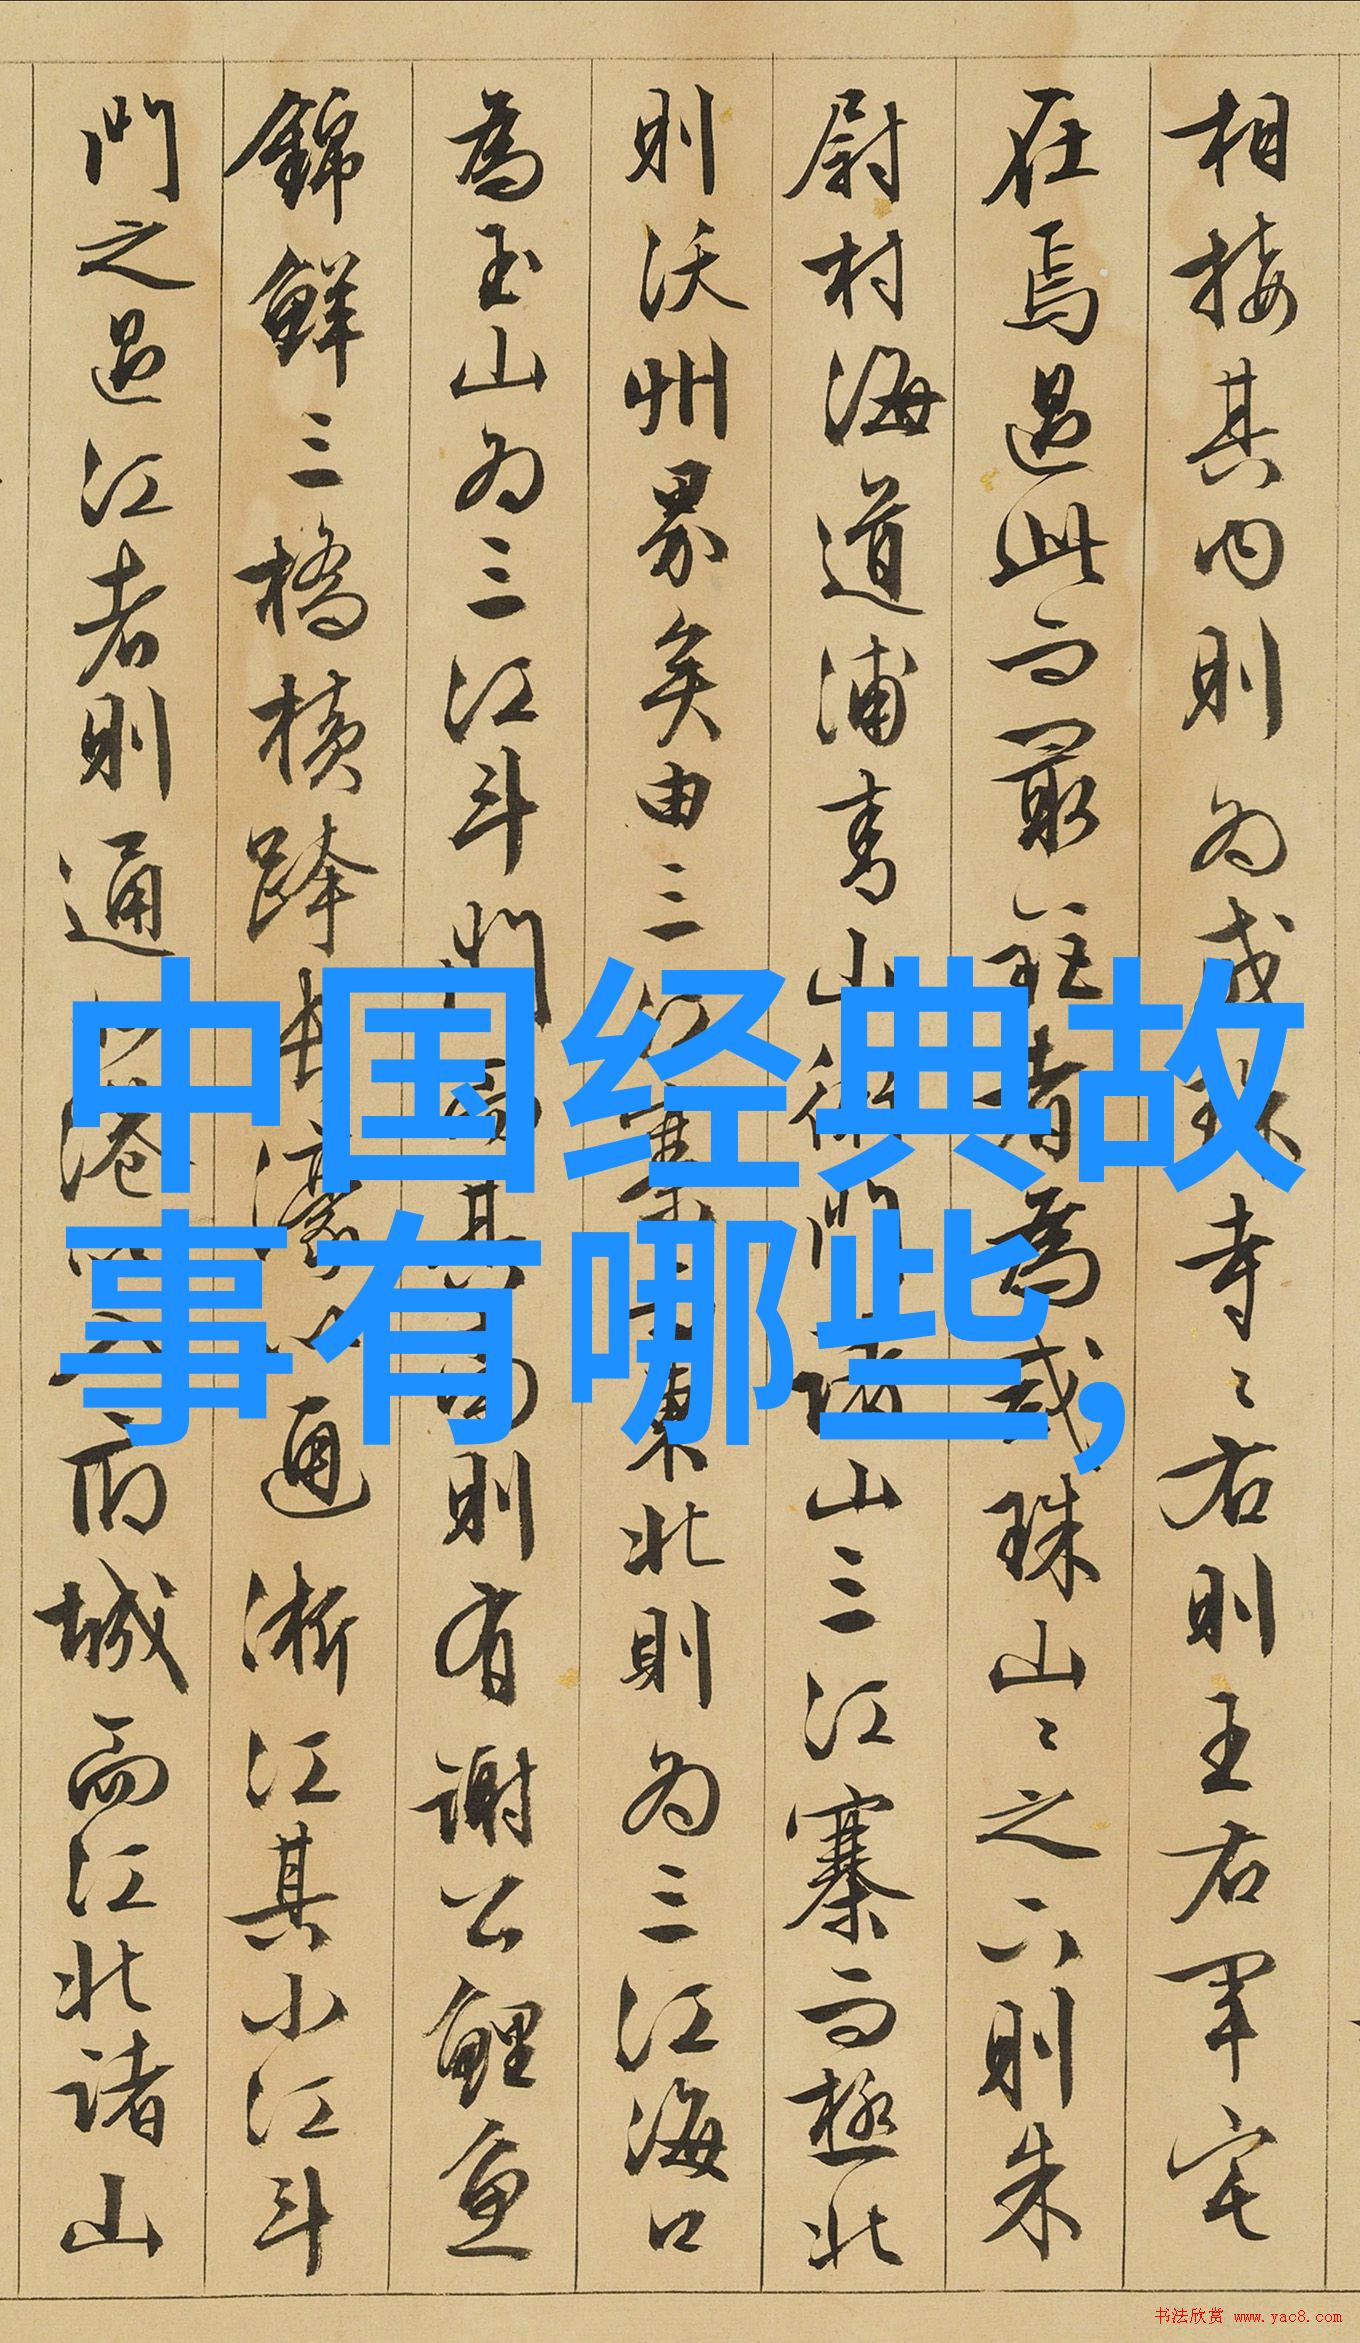 相接其内则为戒珠寺〻右則王右軍宅
在焉過此而最 者為戒珠山〻之 則朱
尉村海道浦 山 山三江寨而極北
則沃州界矣由三江 東北則为三江海口
為玉山为三江斗門 其 則有謝公鯉魚
錦鱗三橋橫跨 濠 通浙江其小江斗
門之過江者則通 港 府城而江北諸山
中国经典故
事有哪些,
书法欣赏 www.yac8.com